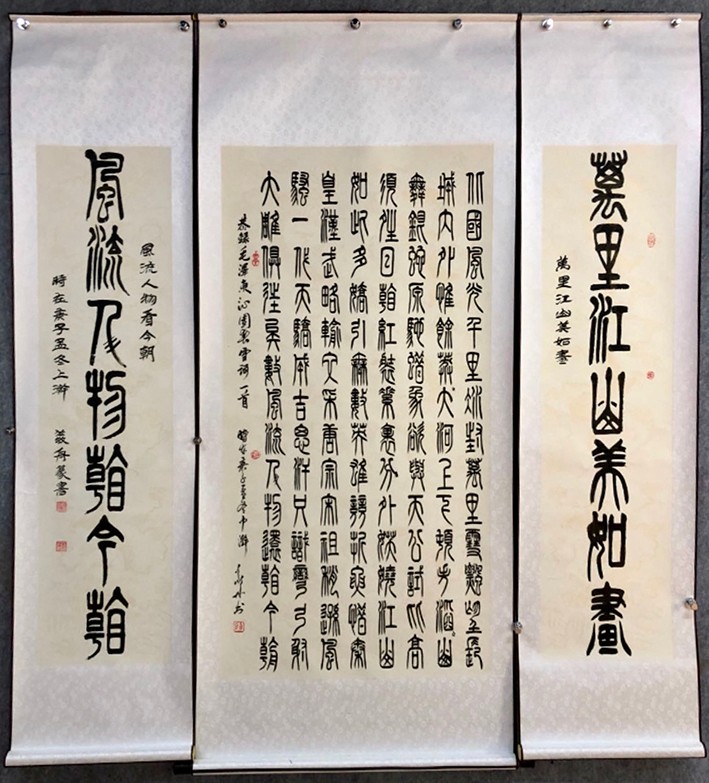 萬里江山美如畫
萬里江山美如畫
北國風光千里冰封萬里雪飄望長
城內外惟餘莽々大河上下頓失滔々山
舞銀蛇原馳蠟象欲與天公試比高
須晴日看紅裝素裹分外妖嬈江山
如此多嬌引無數英雄競折腰惜秦
皇漢武略輸文采唐宗宋祖稍遜風
騷一代天驕成吉思汗只識彎弓射
大雕俱往矣數風流人物還看今朝
恭録毛澤東沁園春雪詞一首 時在庚子孟冬中澣 书
風流人物看今朝
風流人物看今朝
時在庚子孟冬上澣 篆書